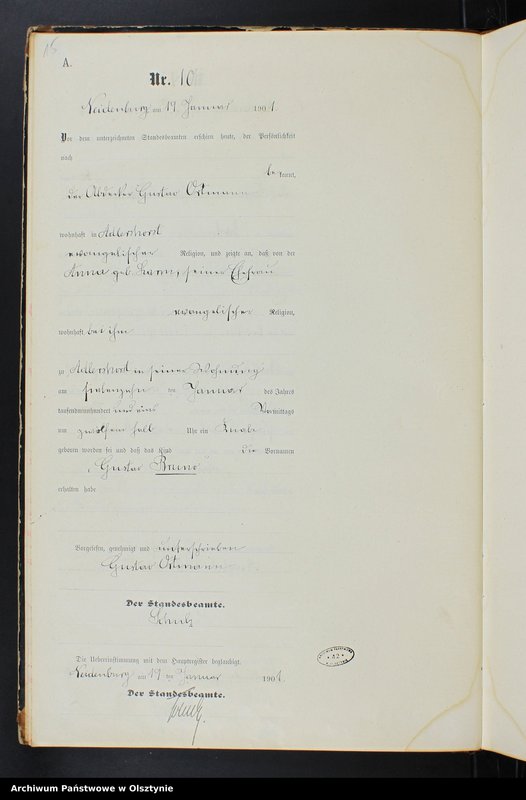 15
A.
Nr. 10
Neidenburg am 19 Januar 1901.
Vor dem unterzeichneten Standesbeamten erschien heute, der Persönlichkeit
nach
bekannt,
der Abdecker Gustav Ottmann
wohnhaft in Adlershorst
evangelischer Religion, und zeigte an, daß von der
Anna geb. seiner Ehefrau
evangelischer Religion,
wohnhaft bei ihm
zu Adlershorst in seiner Wohnung
am siebenzehn ten Januar des Jahres
tausendneunhundert und eins Vormittags
um zwölf ein halb Uhr ein Knabe
geboren worden sei und daß das Kind die Vornamen
Gustav Bruno
erhalten habe
Vorgelesen, genehmigt und unterschrieben
Gustav Ottmann
Der Standesbeamte.
Schulz
Die Uebereinstimmung mit dem Hauptregister beglaubigt.
Neidenburg am 19 ten Januar 1901.
Der Standesbeamte.
Schulz
42
Archiwum Państwowe w Olsztynie